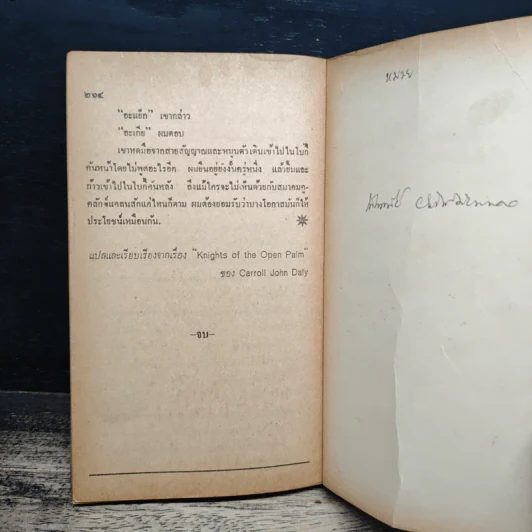 ๒๑๔
“อะแย้ก” เขากล่าว
“อะเกีย” ผมตอบ
เขาหดมือจากสายสัญญาณและหมุนตัวเดินเข้าไปในโบกี้
คันหน้าโดยไม่พูดอะไรอีก ผมยืนอยู่ยังงั้นครู่หนึ่ง แล้วยิ้มและ
ก้าวเข้าไปในโบกี้คันหลัง ถึงแม้ใครจะไม่เห็นด้วยกับสมาคมคู-
คลักซ์แคลนสักแค่ไหนก็ตาม ผมต้องยอมรับว่าบางโอกาสมันก็ให้
ประโยชน์เหมือนกัน.
แปลและเรียบเรียงจากเรื่อง “Knights of the Open Palm”
ของ Carroll John Daly
—จบ—